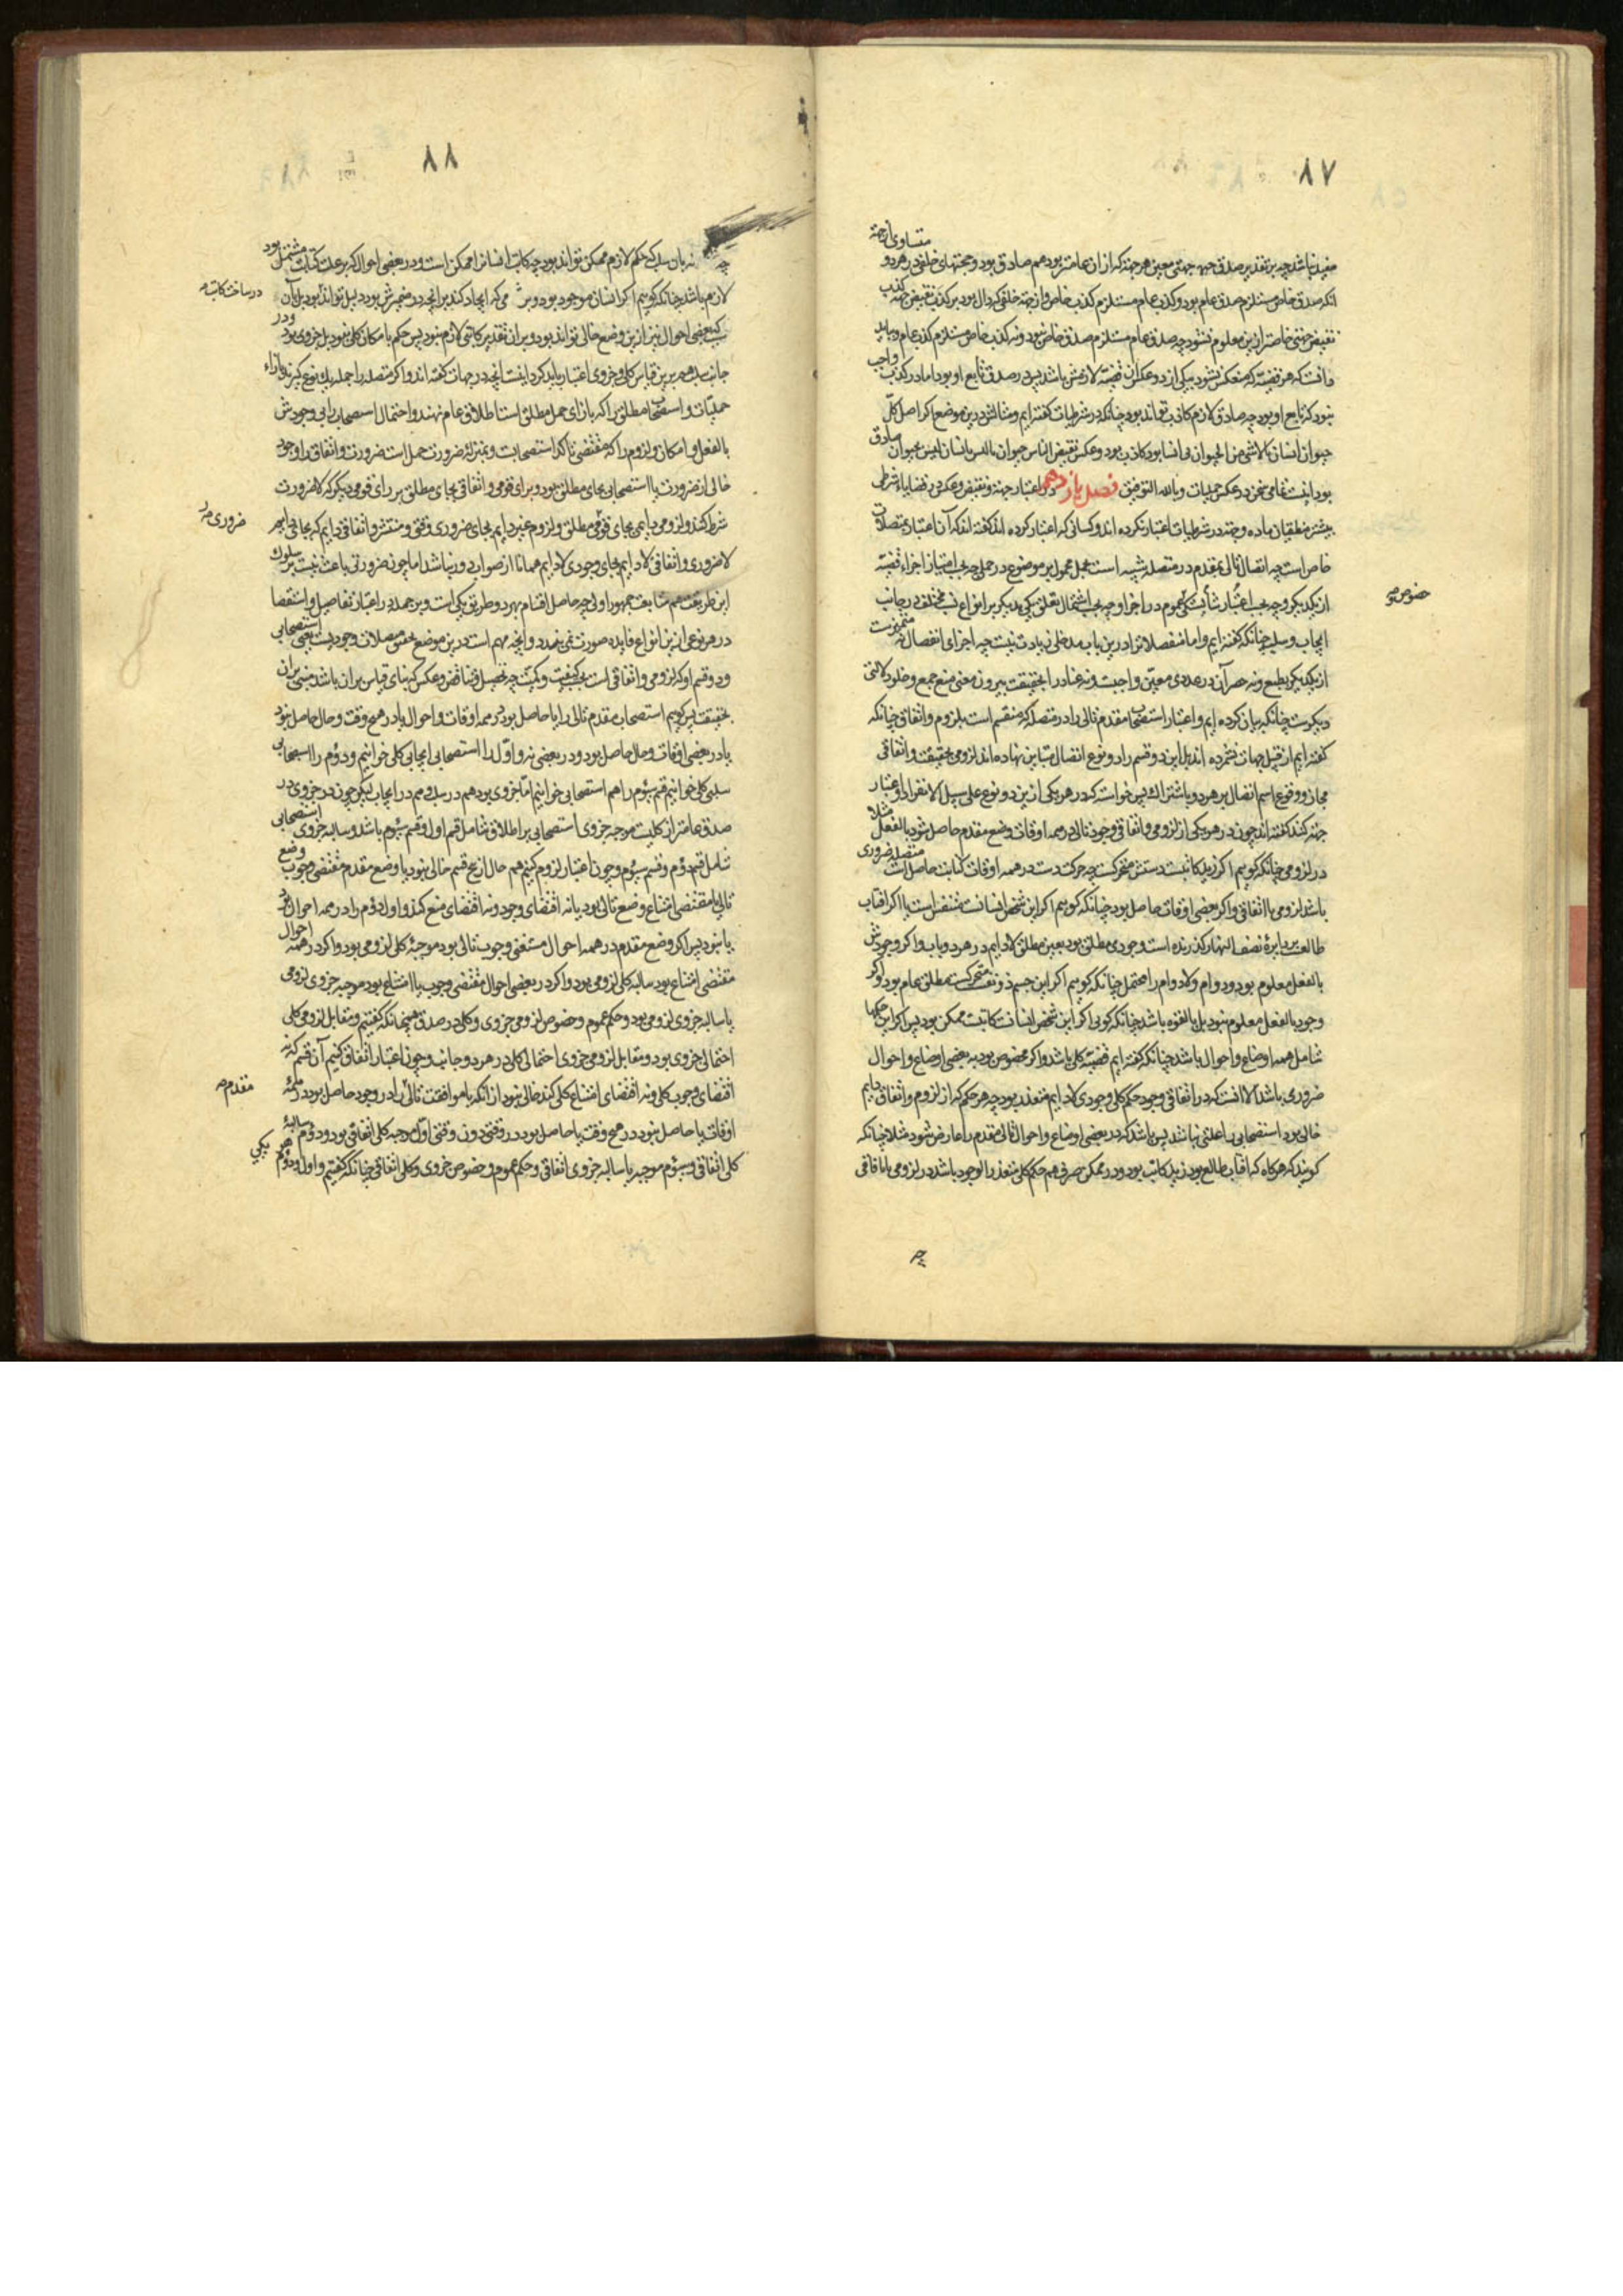 ۸۷
متساوی از جهة
مفید نباشد چه بر تقدیر صدق جهتی معین هر جهة که از ان عامتر بود هم صادق بود و جهتهای خلفی در هر دو
انکه صدق خاص مستلزم صدق عام بود و کذب عام مستلزم کذب خاص و از جهة خلفی که دال بود بر کذب نقیض جهة کذب
نقیض جهتی خاصتر از این معلوم نشود چه صدق عام مستلزم صدق خاص نبود و نه کذب خاص مستلزم کذب عام و بباید
دانست که هر قضیة که منعکس شود بیکی از دو عکس ان قضیة لازمش باشد پس در صدق تابع او بود اما در کذب واجب
نبود که تابع او بود چه صادق لازم کاذب تواند بود چنانکه در شرطیات گفته ایم و مثالش درین موضع اکر اصل کل
حیوان انسان یا لا شی من الحیوان بانسان بود کاذب بود و عکس نقیض الناس حیوان یا لیس بانسان لیس بحیوان صادق
بود اینست تمامی سخن در عکس حملیات و بالله التوفیق فصل یازدهم در اعتبار جهة و نقیض و عکس در قضایاء شرطی
بیشتر منطقیان ماده و جهة در شرطیات اعتبار نکرده اند و کسانی که اعتبار کرده اند گفته اند که آن اعتبار بمتصلات
خاص است چه اتصال تالی بمقدم در متصله شبیه است بحمل محمول بر موضوع در حملی چه بحسب امتیاز اجزاء قضیة
خصوص
از یکدیکر و چه بحسب اعتبار شایستکی عموم در اجزا و چه بحسب اشتمال تعلق یکی بدیکر بر انواع نسب مختلف در جانب
ایجاب و سلب چنانکه گفته ایم و اما منفصلاترا درین باب مدخلی زیادت نیست چه اجزای انفصال نه متمیزست
از یکدیکر بطبع و نه حصر آن در عددی معین واجبست و نه عناد را بحقیقت بیرون معنی منع جمع و خلو دلالتی
دیکرست چنانکه بیان کرده ایم و اعتبار استصحاب مقدم تالی را در متصله که منقسم است بلزوم و اتفاق چنانکه
گفته ایم از قبیل جهات نشمرده اند بل این دو قسم را دو نوع اتصال متباین نهاده اند لزومی بحقیقت و اتفاقی
مجاز و وقوع اسم اتصال بر هر دو باشتراک پس خواسته که در هر یکی از این دو نوع علی سبیل الانفراد اعتبار
جهة کنند گفته اند چون در هر یکی از لزومی و اتفاقی وجود تالی در همه اوقات وضع مقدم حاصل شود بالفعل مثلا
در لزومی چنانکه کوییم اکر زید کاتبست دستش متحرکست چه حرکت دست در همه اوقات کتابت حاصل است متصله ضروری
باشد لزومی یا اتفاقی و اکر بعضی اوقات حاصل بود چنانکه کوییم اکر این شخص انسانست متنفس است یا اکر افتاب
طالعست بدایرهٔ نصف النهار کذرنده است وجودی مطلق بود بعین مطلق لادایم در هر دو باب و اکر وجودش
بالفعل معلوم بود و دوام و لادوام را محتمل چنانکه کوییم اکر این جسم ذو نفسست متحرکست مطلق عام بود و اکر
وجود بالفعل معلوم نبود بل بالقوه باشد چنانکه کویی اکر این شخص انسانست کاتبست ممکن بود پس اکر این حکمها
شامل همه اوضاع و احوال باشد چنانکه گفته ایم قضیة کلی باشد و اکر مخصوص بود به بعضی اوضاع و احوال
ضروری باشد الا انست که در اتفاقی وجود حکم کلی وجودی لادایم متعذر بود چه هر حکم که از لزوم و اتفاق دایم
خالی بود استصحابی را علتی نباشد پس باشد که در بعضی اوضاع و احوال تالی مقدم را عارض شود مثلا چنانکه
کویند که هرکاه که افتاب طالع بود زید کاتب بود و در ممکن صرف هم حکم کلی متعذر الوجود باشد در لزومی یا اتفاقی
۸۸
چه نه بان سبب که حکم لازم ممکن تواند بود چه کاتب انسانرا ممکن است و در بعضی احوال که بر علت کتابت مشتمل بود
لازم باشد چنانکه کوییم اکر انسان موجود بود و بر می که ایجاد کند بر انچه در ضمیرش بود دلیل تواند بود بل بان
در ساخت کاتب
سبب که بعضی احوال نیز از این وضع خالی تواند بود و بران تقدیر کاتبی لازم نبود پس حکم بامکان کلی نبود بل جزوی بود و در
جانب سلب هم برین قیاس کلی و جزوی اعتبار باید کرد اینست انچه در جهات گفته اند و اکر متصله را جمله یک نوع کیرند بازاء
حملیات و استصحاب مطلق را که بازای حمل مطلق است اطلاق عام نهند و احتمال استصحاب را بی وجودش
بالفعل و امکان و لزوم را که مقتضی تاکد استصحابست و بمنزلهٔ ضرورت حمل است ضرورت و اتفاق را وجود
خالی از ضرورت یا استصحابی بجای مطلق بود و برای قومی و اتفاقی بجای مطلق بر رای قومی دیکر که لا ضرورت
ضروری
شرط کنند و لزومی دایم بجای قومی مطلق و لزوم غیر دایم بجای ضروری وقتی و منتشر و اتفاقی دایم که بجای دایم
لا ضروری و اتفاقی لادایم بجای وجودی لادایم همانا از صواب دور نباشد اما چون ضرورتی باعث نیست بر سلوک
این طریقت هم متابعت جمهور اولی چه حاصل اقسام بهر دو طریق یکی است و بر جمله در اعتبار تفاصیل و استقصا
در هر نوعی از این انواع فایده صورت نمی بندد و انچه مهم است درین موضع بحث متصلات وجودیست یعنی استصحابی
و دو قسم او که لزومی و اتفاقی است بحسب کیفیت و کمیت چه تحصیل تناقض و عکس که بنای قیاس بران باشد مبنی بران
بحقیقت پس کوییم استصحاب مقدم تالی را یا حاصل بود در همه اوقات و احوال یا در هیچ وقت و حال حاصل نبود
یا در بعضی اوقات و حال حاصل بود و در بعضی نه و اول را استصحابی ایجابی کلی خوانیم و دوم را استصحابی
سلبی کلی خوانیم قسم سیوم را هم استصحابی خوانیم اما جزوی بود هم در سلب و هم در ایجاب لیکن چون در جزوی در
صدق عامتر از کلیست موجبه جزوی استصحابی بر اطلاق شامل قسم اول و قسم سیوم باشد و سالبه جزوی استصحابی
شامل قسم دوم و قسم سیوم و چون اعتبار لزوم کنیم هم حال از پنج قسم خالی نبود یا وضع مقدم مقتضی وجوب وضع
تالی یا مقتضی امتناع وضع تالی بود یا نه اقتضای وجود و نه اقتضای منع کند و اول و دوم را در همه احوال بود
یا نبود پس اکر وضع مقدم در همه احوال مقتضی وجوب تالی بود موجبهٔ کلی لزومی بود و اکر در همه احوال
مقتضی امتناع بود سالبه کلی لزومی بود و اکر در بعضی احوال مقتضی وجوب یا امتناع بود موجبه جزوی لزومی
یا سالبه جزوی لزومی بود و حکم عموم و خصوص لزومی جزوی و کلی در صدق همچنانکه گفتیم و مقابل لزومی کلی
احتمالی جزوی بود و مقابل لزومی جزوی احتمالی کلی در هر دو جانب و چون اعتبار اتفاق کنیم آن قسم که نه
مقدم
اقتضای وجوب کلی و نه اقتضای امتناع کلی کند خالی نبود از آنکه یا موافقت تالی را در وجود حاصل بود در همه
اوقات یا حاصل نبود در هیچ وقت یا حاصل بود در وقتی دون وقتی اول موجبه کلی اتفاقی بود و دوم سالبه
کلی اتفاقی و سیوم موجبه یا سالبه جزوی اتفاقی و حکم عموم و خصوص جزوی و کلی اتفاقی چنانکه گفتیم و اول و دوم